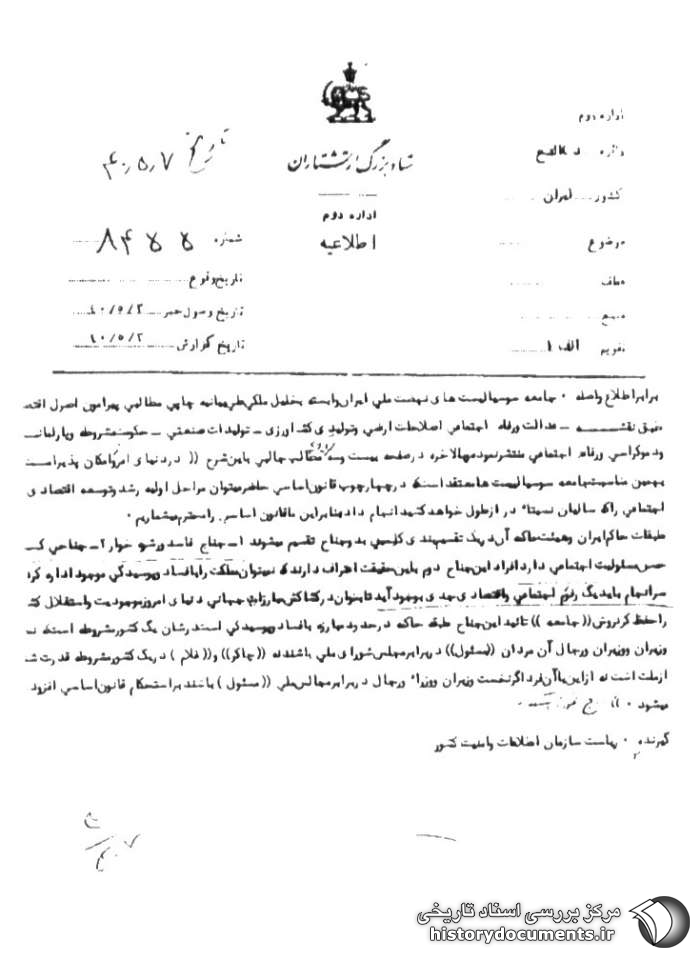 اداره دوم
تاریخ ۴۰٫۵٫۷
ستاد بزرگ ارتشتاران
دایره
کشور ایران
اداره دوم
اطلاعیه
شماره ۸۴۵۵
موضوع
تاریخ وقوع
عطف
تاریخ وصول خبر
منبع
تاریخ گزارش ۴۰/۵/۲
تقویم الف ۱
برابر اطلاع واصله ۰ جامعه سوسیالیست های نهضت ملی ایران وابسته بخلیل ملکی طی بیانیه چاپی مطالبی پیرامون اصول
نقشه ــ عدالت و رفاه اجتماعی اصلاحات ارضی و تولیدی کشاورزی ــ تولیدات صنعتی ــ حکومت مشروطه و پارلمانی
و دموکراسی و رفاه اجتماعی منتشر نموده بالاخره در صفحه بیست و سه مطالب جالبی باین شرح (( در دنیای امروز امکان پذیر است
بهمین مناسبت جامعه سوسیالیست ها معتقد است که در چهارچوب قانون اساسی حاضر میتوان مراحل اولیه رشد و توسعه اقتصادی
اجتماعی را که سالیان نسبتا" دراز طول خواهد کشید انجام داد بنابراین ما قانون اساسی را محترم میشماریم ۰
طبقات حاکم ایران و هیئت حاکمه آن در یک تقسیم بندی کلی به دو جناح تقسیم میشوند ۱ـ جناح فاسد و رشوه خوار ۲ـ جناحی که
حس مسئولیت اجتماعی دارد افراد این جناح دوم باین حقیقت اعتراف دارند که نمیتوان مملکت را با فساد و پوسیدگی موجود اداره کرد
سرانجام باید یک رفرم اجتماعی و اقتصادی جدی بوجود آید تا بتوان در کشاکش مبارزات جهانی دنیای امروز موجودیت و استقلال
را حفظ کرد روش (( جامعه )) تائید این جناح طبقه حاکمه در حدود مبارزه با فساد و پوسیدگی است در شان یک کشور مشروطه است که
وزیران و وزیران و رجال آن مردان ((مسئول)) در برابر مجلس شورای ملی باشند نه ((چاکر)) و ((غلام) در یک کشور مشروطه قدرت
از ملت است نه از این یا آن فرد اگر نخست وزیران و وزرا" و رجال در برابر مجالس ملی ((مسئول) باشند بر استحکام قانون اساسی افزوده
میشود ۰ ))
گیرنده ۰ ریاست سازمان اطلاعات و امنیت کشور
مرکز بررسی اسناد تاریخی
historydocuments.ir